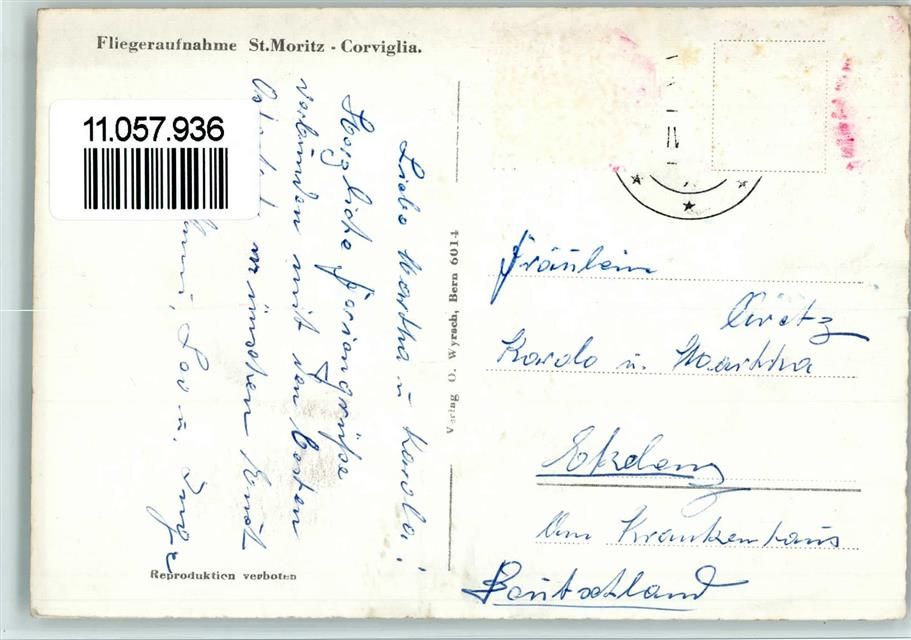 Fliegeraufnahme St.Moritz - Corviglia.
11.057.936
Liebe Martha u Karola!
Herzliche Feriengrüße
verbunden mit den besten
wünschen Euch
Leo u.
Verlag O. Wyrsch, Bern 6014
Fräulein
Karola u. Martha
Am Krankenhaus
Deutschland
Reproduktion verboten